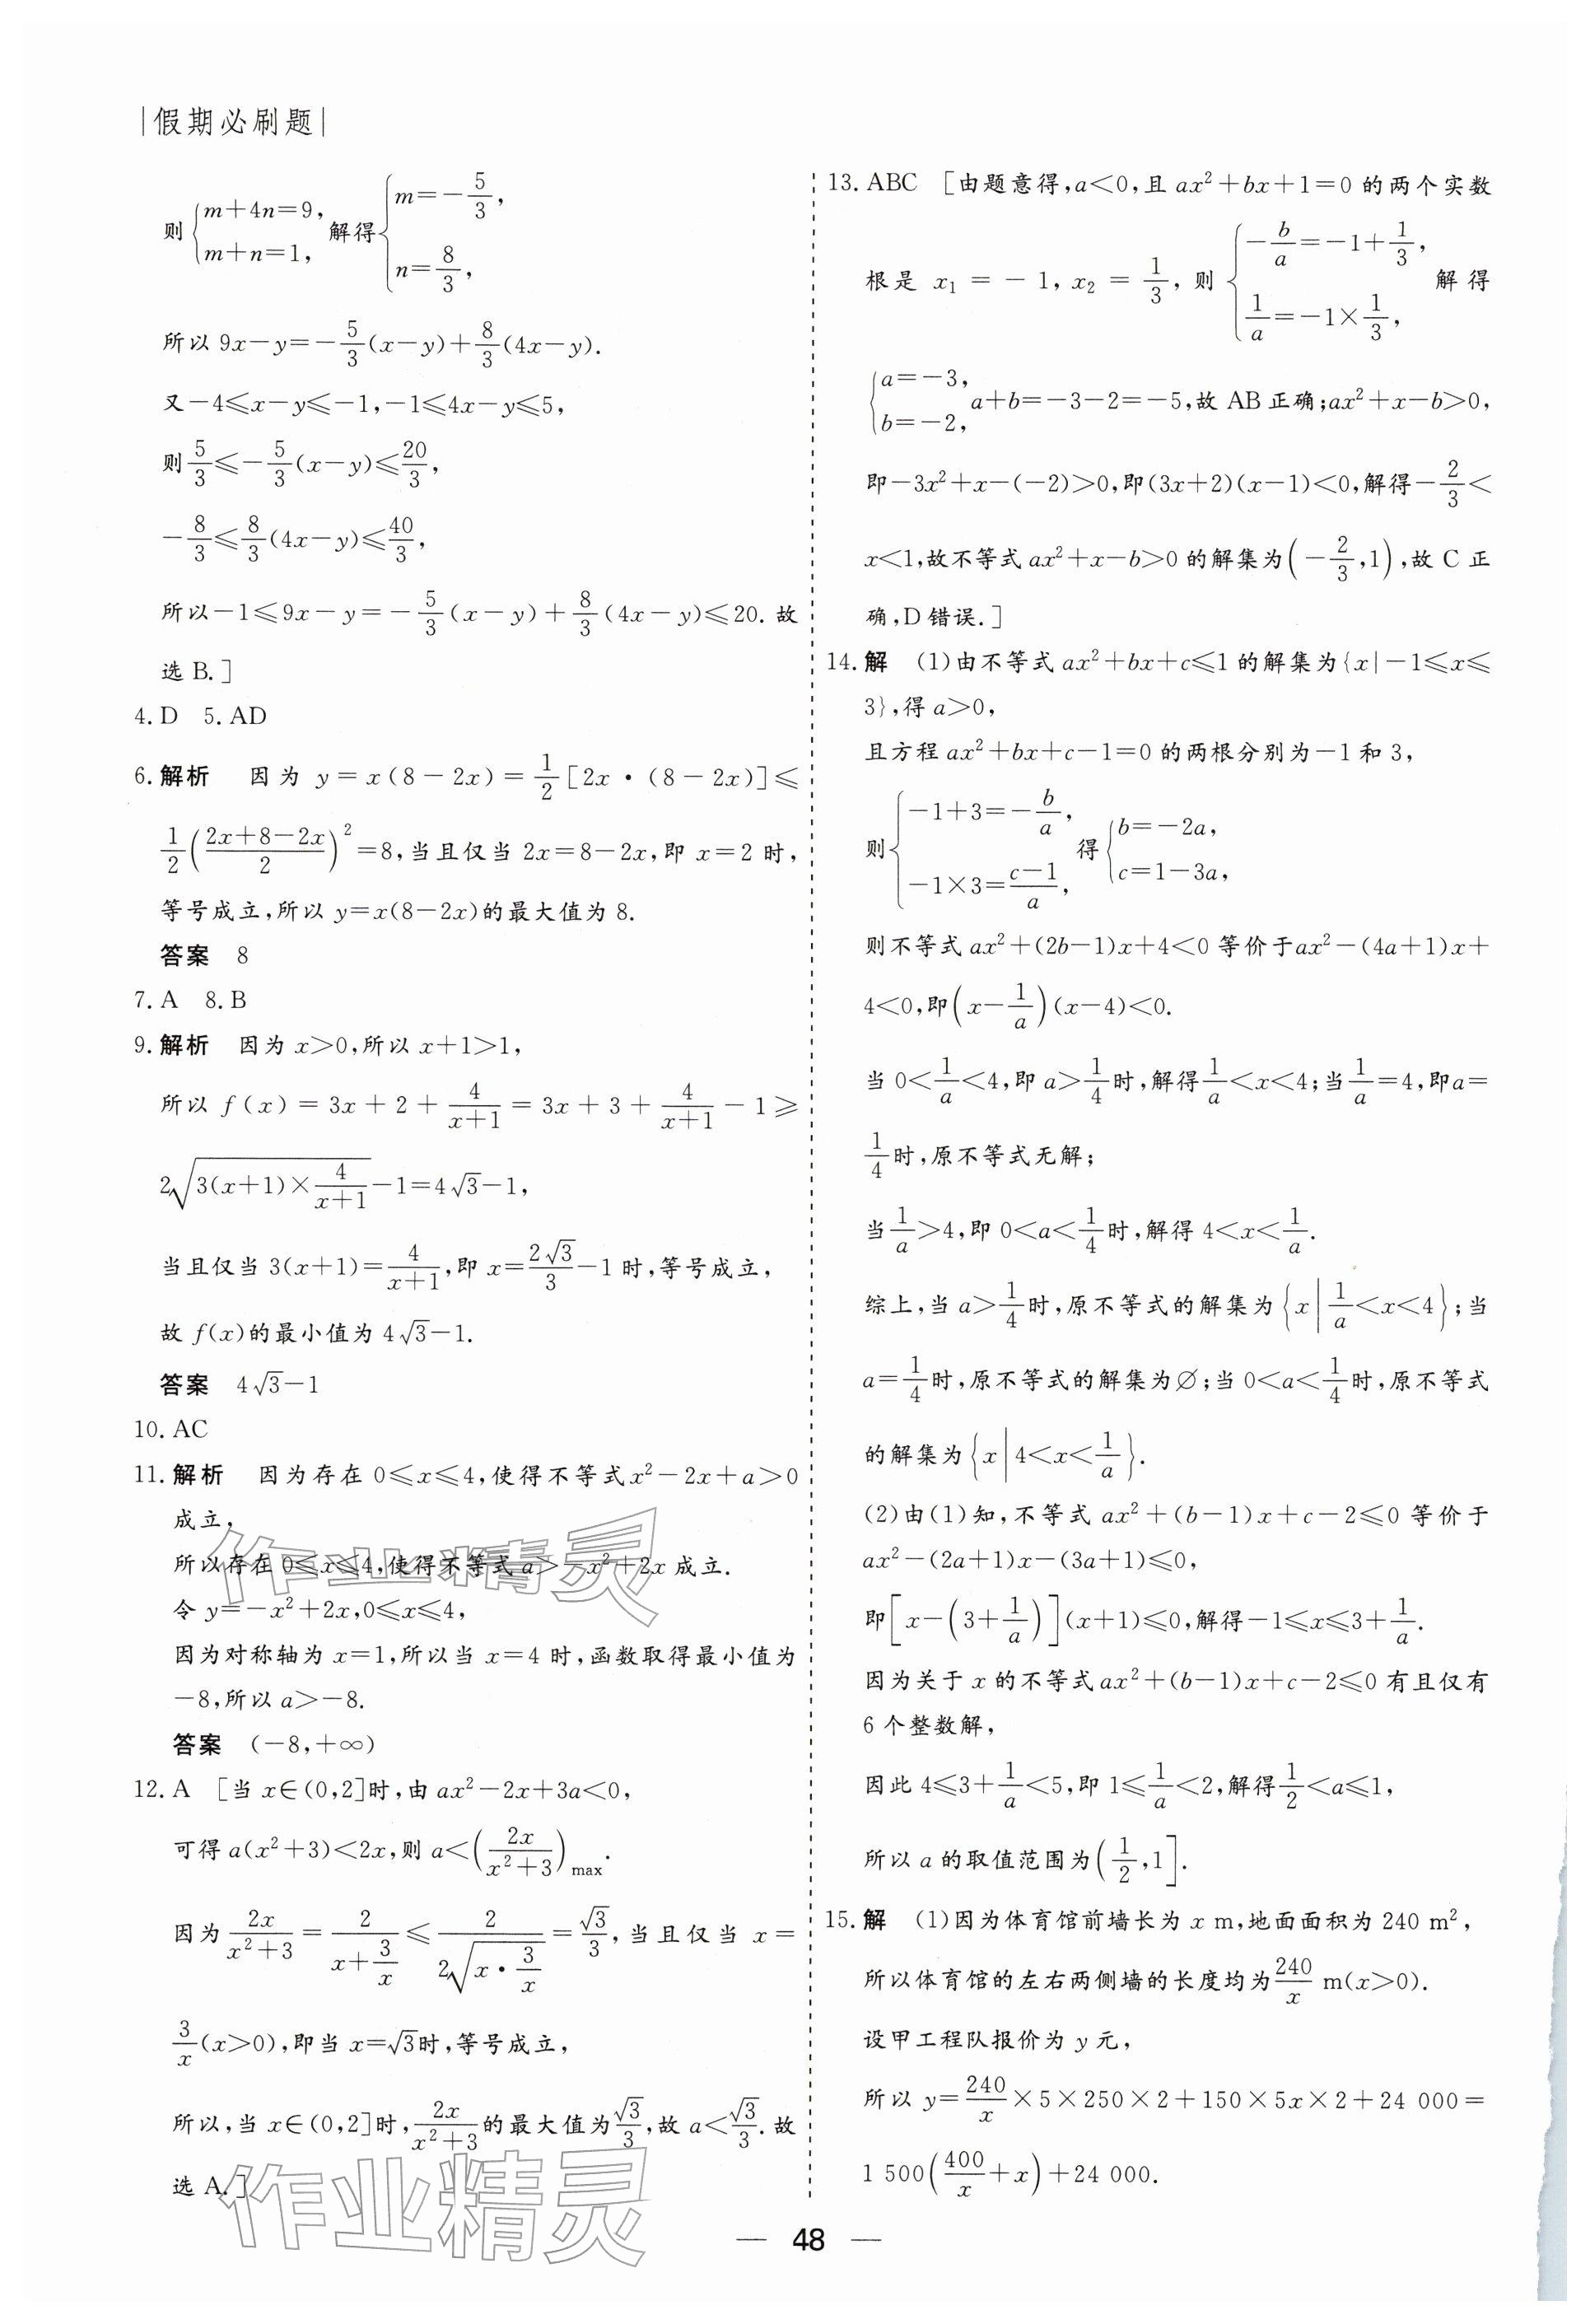 |假期必刷题|
则{m+4n=9, m+n=1, 解得{m=-5/3, n=8/3,
所以 9x-y=-5/3(x-y)+8/3(4x-y).
又-4≤x-y≤-1,-1≤4x-y≤5,
则5/3≤-5/3(x-y)≤20/3,
-8/3≤8/3(4x-y)≤40/3,
所以-1≤9x-y=-5/3(x-y)+8/3(4x-y)≤20.故
选 B.]
4. D 5. AD
6. 解析 因为 y=x(8-2x)=1/2[2x·(8-2x)]≤
1/2((2x+8-2x)/2)²=8,当且仅当 2x=8-2x,即 x=2 时,
等号成立,所以 y=x(8-2x)的最大值为 8.
答案 8
7. A 8. B
9. 解析 因为 x>0,所以 x+1>1,
所以 f(x)=3x+2+4/(x+1)=3x+3+4/(x+1)-1≥
2√(3(x+1)×4/(x+1))-1=4√3-1,
当且仅当 3(x+1)=4/(x+1),即 x=2√3/3-1 时,等号成立,
故 f(x)的最小值为 4√3-1.
答案 4√3-1
10. AC
11. 解析 因为存在 0≤x≤4,使得不等式x²-2x+a>0
成立,
所以存在 0≤x≤4,使得不等式 a>-x²+2x 成立.
令 y=-x²+2x,0≤x≤4,
因为对称轴为 x=1,所以当 x=4 时,函数取得最小值为
-8,所以 a>-8.
答案 (-8,+∞)
12. A [当 x∈(0,2]时,由 ax²-2x+3a<0,
可得 a(x²+3)<2x,则 a<(2x/(x²+3))max.
因为2x/(x²+3)=2/(x+3/x)≤2/(2√(x·3/x))=√3/3,当且仅当 x=
3/x(x>0),即当 x=√3时,等号成立,
所以,当 x∈(0,2]时,2x/(x²+3)的最大值为√3/3,故 a<√3/3.故
选 A.]
13. ABC [由题意得,a<0,且 ax²+bx+1=0 的两个实数
根是 x₁=-1,x₂=1/3,则{-b/a=-1+1/3, 1/a=-1×1/3, 解得
{a=-3, b=-2, a+b=-3-2=-5,故 AB 正确;ax²+x-b>0,
即-3x²+x-(-2)>0,即(3x+2)(x-1)<0,解得-2/3<
x<1,故不等式 ax²+x-b>0 的解集为(-2/3,1),故 C 正
确,D 错误.]
14. 解 (1)由不等式 ax²+bx+c≤1 的解集为{x|-1≤x≤
3},得 a>0,
且方程 ax²+bx+c-1=0 的两根分别为-1 和 3,
则{-1+3=-b/a, -1×3=(c-1)/a, 得{b=-2a, c=1-3a,
则不等式 ax²+(2b-1)x+4<0 等价于ax²-(4a+1)x+
4<0,即(x-1/a)(x-4)<0.
当 0<1/a<4,即 a>1/4时,解得1/a<x<4;当1/a=4,即a=
1/4时,原不等式无解;
当1/a>4,即 0<a<1/4时,解得 4<x<1/a.
综上,当 a>1/4时,原不等式的解集为{x|1/a<x<4};当
a=1/4时,原不等式的解集为∅;当 0<a<1/4时,原不等式
的解集为{x|4<x<1/a}.
(2)由(1)知,不等式 ax²+(b-1)x+c-2≤0 等价于
ax²-(2a+1)x-(3a+1)≤0,
即[x-(3+1/a)](x+1)≤0,解得-1≤x≤3+1/a.
因为关于 x 的不等式ax²+(b-1)x+c-2≤0 有且仅有
6 个整数解,
因此 4≤3+1/a<5,即 1≤1/a<2,解得1/2<a≤1,
所以 a 的取值范围为(1/2,1].
15. 解 (1)因为体育馆前墙长为 x m,地面面积为 240 m²,
所以体育馆的左右两侧墙的长度均为240/x m(x>0).
设甲工程队报价为 y 元,
所以 y=240/x×5×250×2+150×5x×2+24 000=
1 500(400/x+x)+24 000.
— 48 —
作业精灵
作业精灵